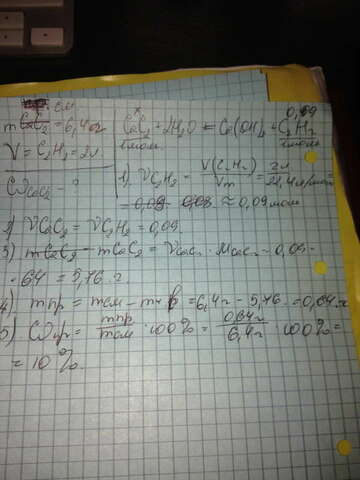 mCaC₂ = 6,4г
V = C₂H₂ = 2л
ωCaC₂ - ?
x 0,09
CaC₂ + 2H₂O = Ca(OH)₂ + C₂H₂
1моль 1моль
1). νC₂H₂ = V(C₂H₂) / Vm = 2л / 22,4л/моль =
≈ 0,09 моль
2) νCaC₂ = νC₂H₂ = 0,09.
3) mCaC₂ = νCaC₂ · MCaC₂ = 0,09 ·
· 64 = 5,76 г.
4). mпр = mсм - mч.в = 6,4г - 5,76. = 0,64г
5). ωпр = mпр / mсм · 100% = 0,64г / 6,4г · 100% =
= 10%.